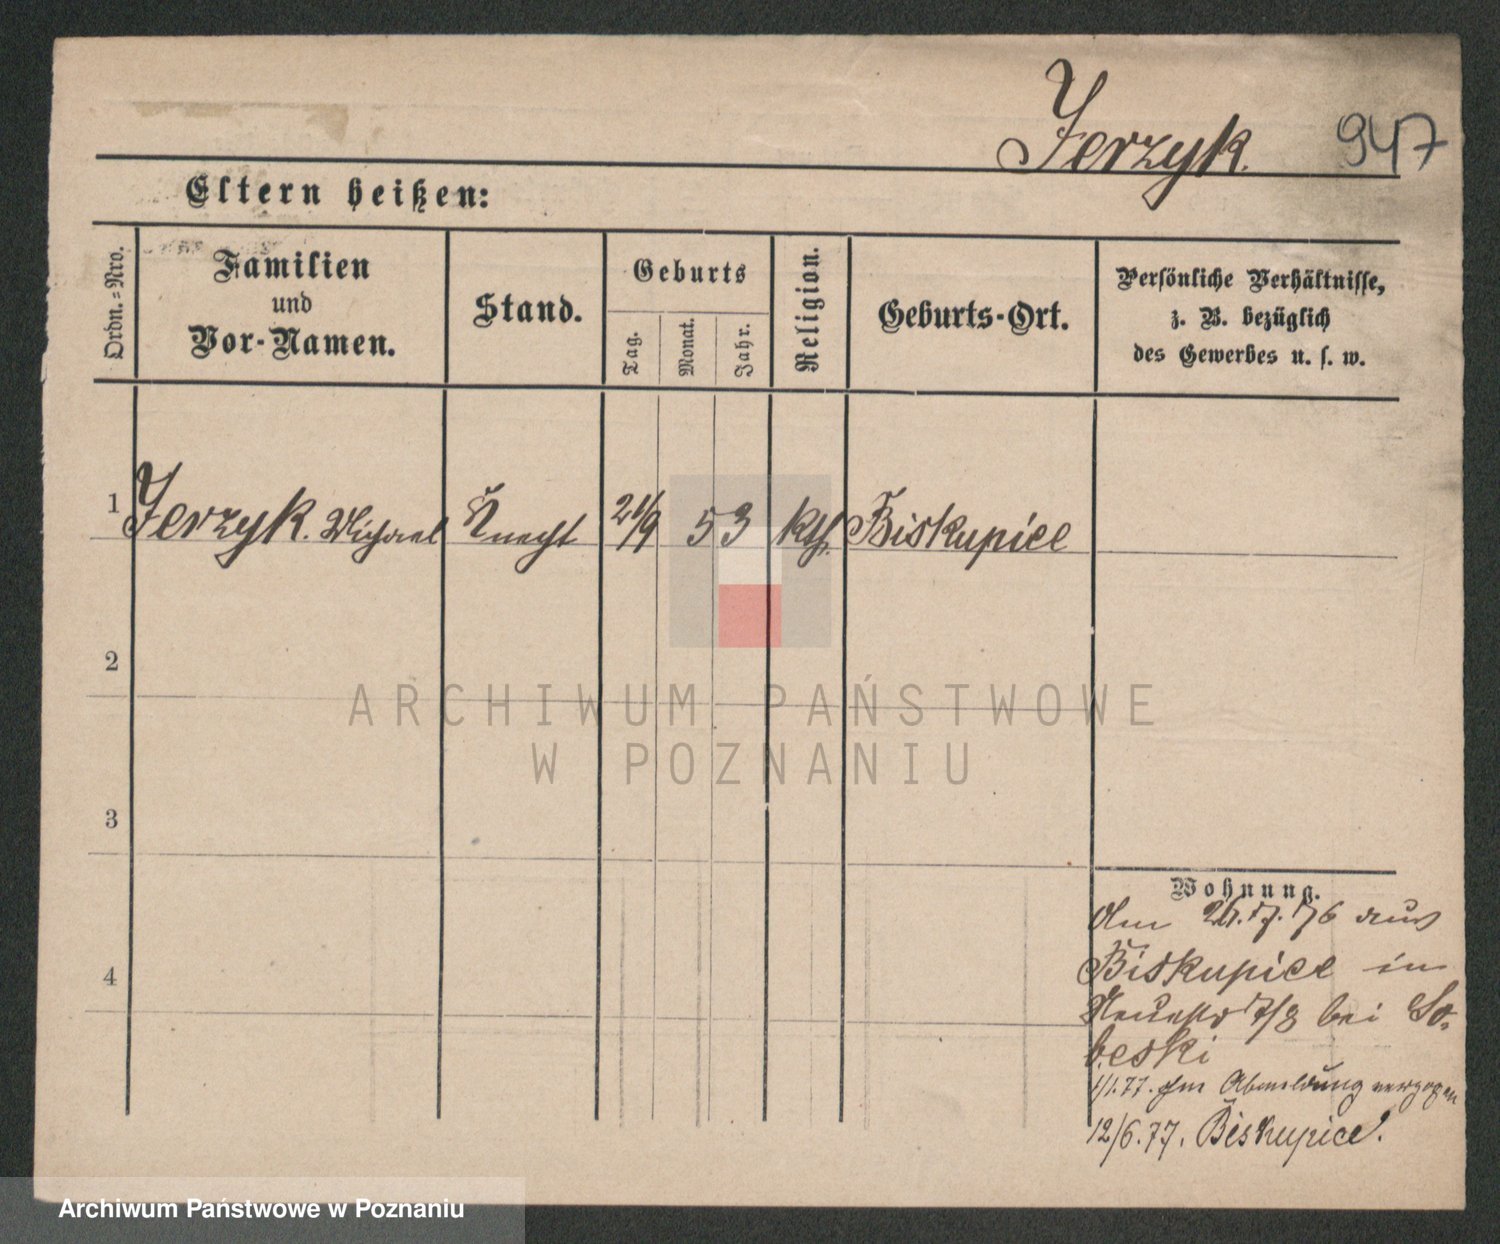 Jerzyk. 947
Eltern heißen:
Ordn.=Nro.
Familien
und
Vor-Namen.
Stand.
Geburts
Tag.
Monat.
Jahr.
Religion.
Geburts-Ort.
Persönliche Verhältnisse,
z. B. bezüglich
des Gewerbes u. s. w.
1 Jerzyk. Michael Knecht 21/9 53 kth. Biskupice
2
ARCHIWUM PAŃSTWOWE
W POZNANIU
3
Wohnung.
Am 21.7.76 aus
Biskupice in
4
Neuestr 7/8 bei So-
beski
1/1.77. ohne Abmeldung verzogen
12/6.77. Biskupice.
Archiwum Państwowe w Poznaniu